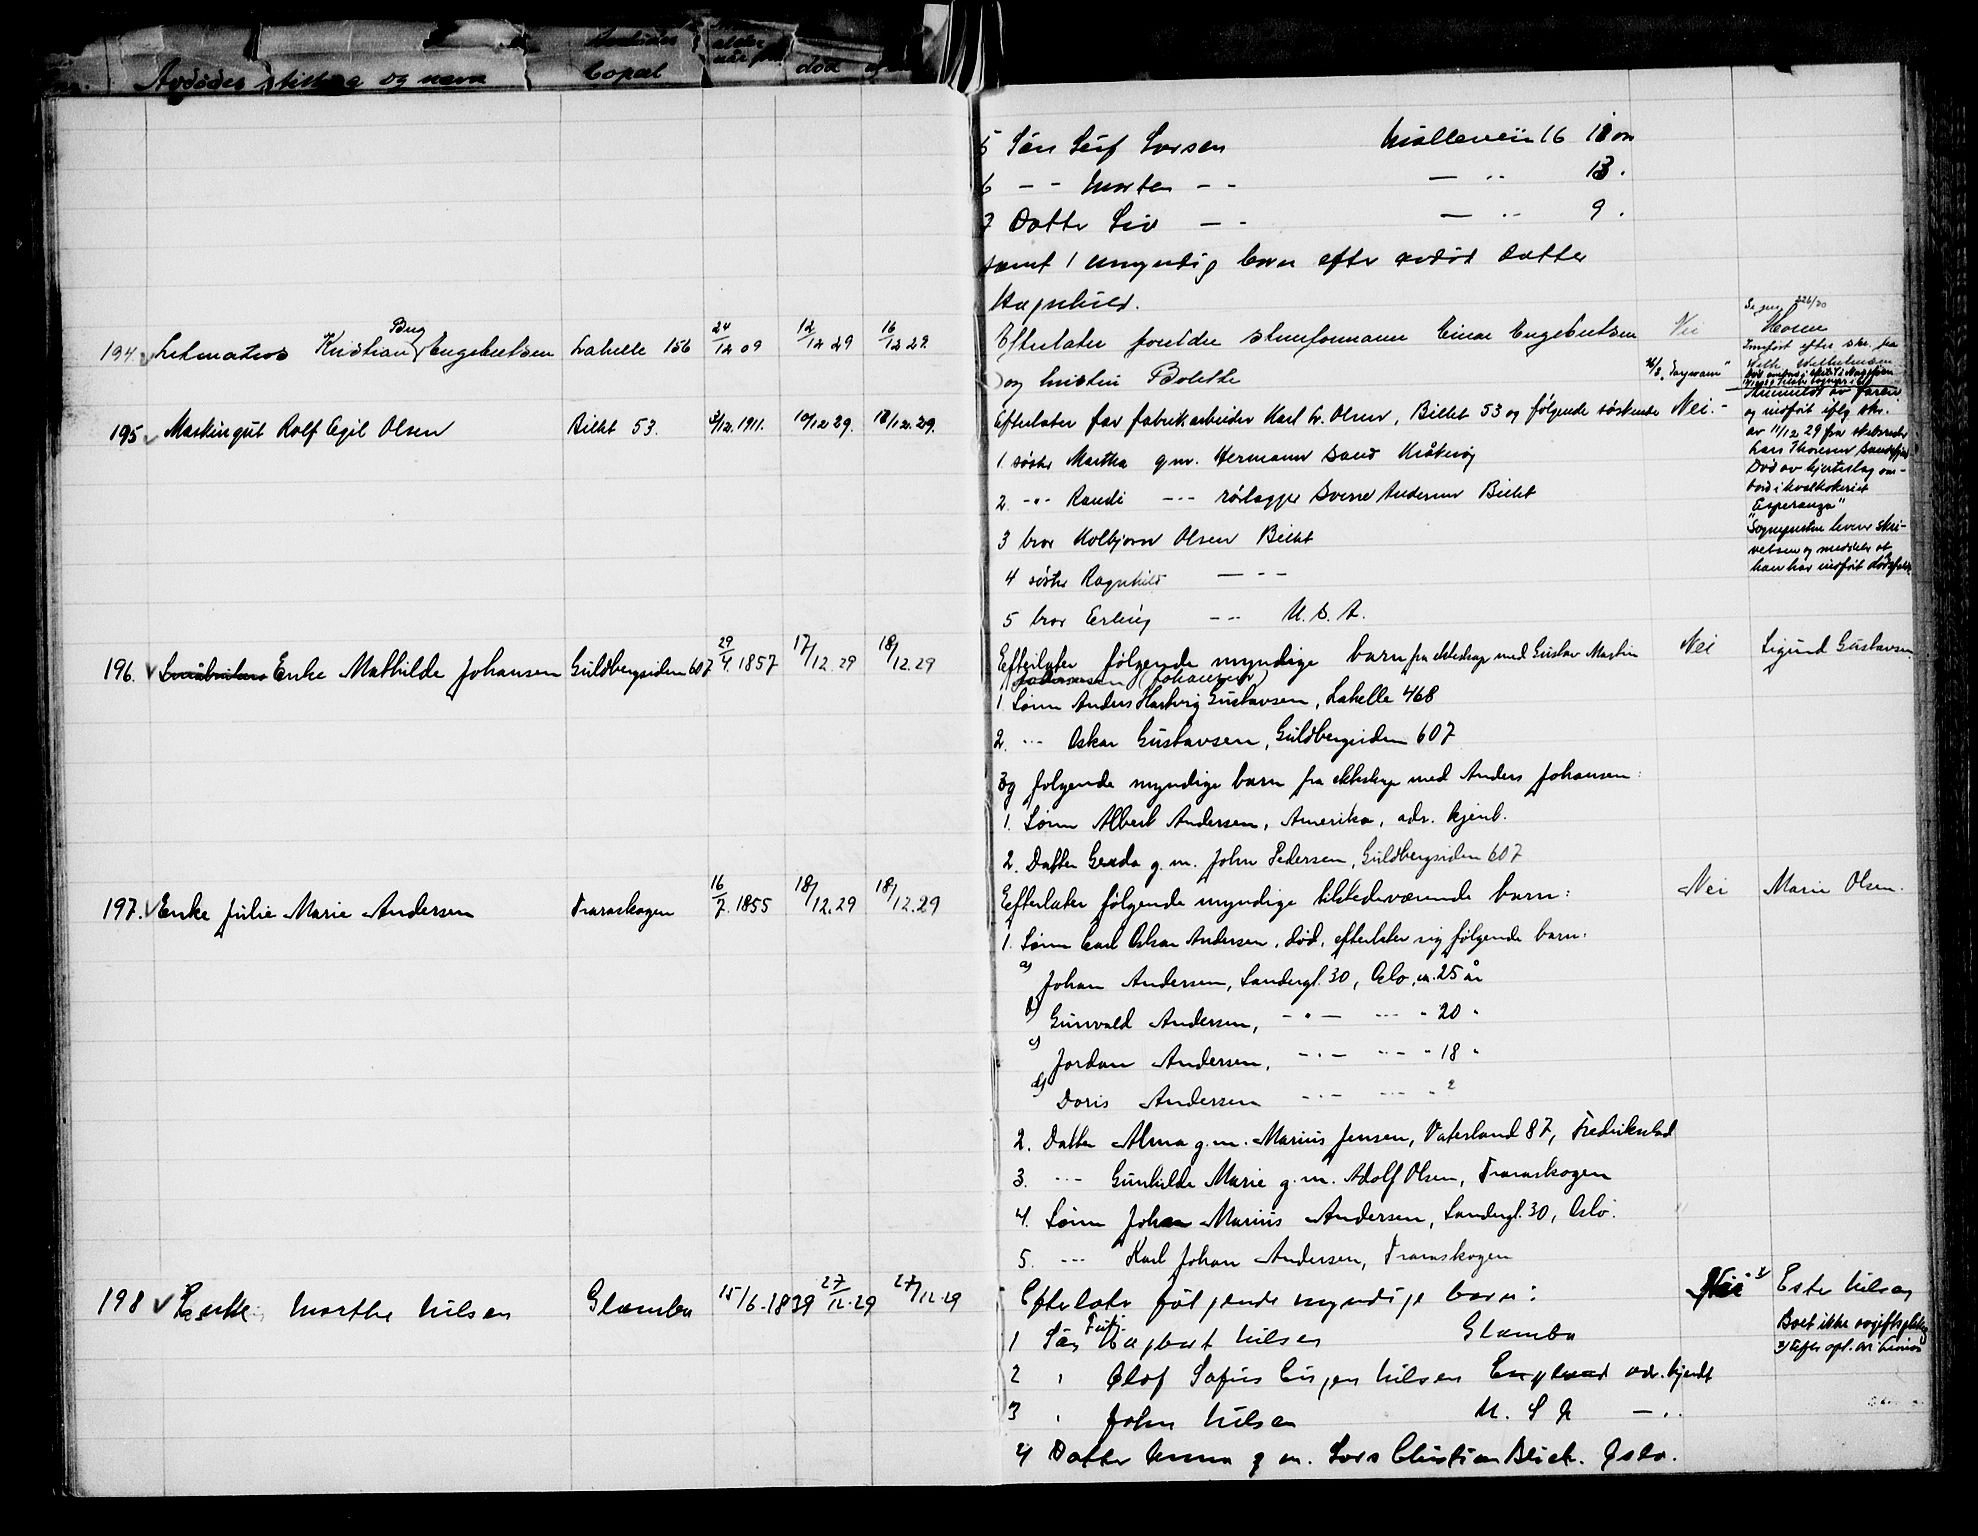 Avdødes stilling og navn
bopæl
død
5 Søn Leif Larsen Mølleveien 16 18 år
6 - - Morten - - — .. 13 .
7 Datter Liv — - — .. 9 .
samt 1 umyndig barn efter avdød datter
Ragnhild.
194 Letmatros Kristian Engebretsen Lahelle 156 24/12 09 12/12 29 16/12 29
Efterlater foreldre stuerformann Einar Engebretsen Nei
og hustru Bolette
195 Maskingut Rolf Egil Olsen Billet 53. 3/12.1911. 10/12 29. 18/12.29.
Efterlater far fabrikarbeider Karl Kr. Olsen, Billet 53 og følgende søskende Nei.-
1. søster Martha g.m. Hermann Sand Kråkerøy
2. -"- Randi --- rørlegger Sverre Andersen Billet
3 bror Kolbjørn Olsen Billet
4 søster Ragnhild — - -
5 bror Erling -- U.S.A.
Anmeldt av faren
og indført iflg skr.
av 11/12 29 fra skibsreder
Lars Thoresen Sandefjord
Død av hjerteslag om-
bord i hvalkokeriet
"Esperanza"
Sognepresten lever skri-
velsen og meddeler at
han har indført dødsfallet
196. Enke Mathilde Johansen Guldbergsiden 607 29/4.1857 17/12.29 18/12.29
Efterlater følgende myndige barn fra ekteskap med Gustav Martin Nei Sigurd Gustavsen
(Johansen)
1 Sønn Anders Hartvig Gustavsen, Lahelle 468
2. --- Oskar Gustavsen, Guldbergsiden 607
og følgende myndige barn fra ekteskap med Anders Johansen:
1. Sønn Albert Andersen, Amerika, adr. kjent.
2. Datter Gerda g.m. John Pedersen, Guldbergsiden 607
197. Enke Julie Marie Andersen Traraskogen 16/7.1855 18/12.29 18/12.29
Efterlater følgende myndige tilstedeværende barn: Nei Marie Olsen.
1. Sønn Carl Oskar Andersen, død, efterlater sig følgende barn:
a) Johan Andersen, Sandergt. 30, Oslo, ca. 25 år
b) Gunvald Andersen, - " — --- " 20 "
c) Jordan Andersen, - . — --- " 18 "
d) Doris Andersen - . — --- " 2
2. Datter Alma g.m. Marius Jensen, Vaterland 87, Fredrikstad
3. --- Gunhilde Marie g.m. Adolf Olsen, Traraskogen
4. Sønn Johan Marius Andersen, Sandergt. 30, Oslo.
5. --- Karl Johan Andersen, Traraskogen
198 Enke Marthe Nilsen Glombo 15/6.1839 27/12.29 27/12.29
Efterlater følgende myndige barn: Nei Ester Nilsen
1 Søn Hagbart Nilsen Glombo
Boet ikke avgiftspliktig
2 " Olaf Sofus Nilsen England adr. kjendt
3 " John Nilsen U. S. A — ..
4 Datter Anna g m. Lars Christian Blick. Oslo.